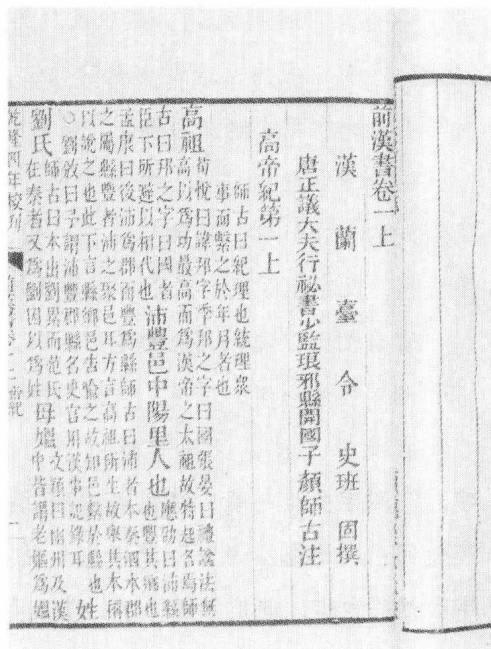 前漢書卷一上
漢蘭臺令史班固撰
唐正議大夫行祕書少監琅邪縣開國子顏師古注
高帝紀第一上
師古曰紀理也統理衆
事而繫之於年月者也
高祖荀悅曰諱邦字季邦之字曰國張晏曰禮諡法無
高以爲功最高而爲漢帝之太祖故特起名焉師
古曰邦之字曰國者
臣下所避以相代也沛豐邑中陽里人也應劭曰沛縣
也豐其鄉也
孟康曰後沛爲郡而豐爲縣師古曰沛者本秦泗水郡
之屬縣豐者沛之聚邑耳方言高祖所生故舉其本稱
以說之也此下言縣鄉邑告喻之故知邑繫於縣也姓
○劉攽曰予謂沛豐郡縣名史官用漢事記錄耳
劉氏師古曰本出劉累而范氏
在秦者又爲劉因以爲姓母媼文穎曰幽州及漢
中皆謂老嫗爲媼
乾隆四年校刊